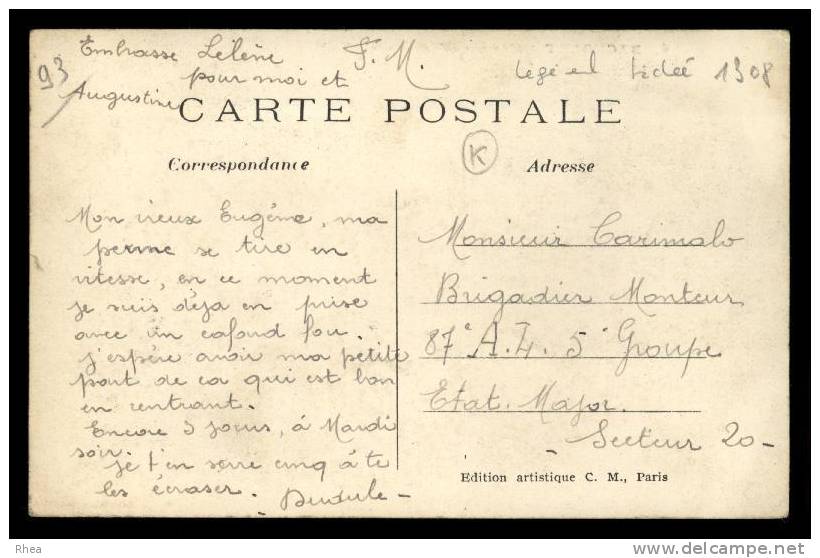 93
Embrasse Lélène
pour moi et
Augustine
F. M.
1308
CARTE POSTALE
K
Correspondance
Adresse
Mon vieux Eugène, ma
perme se tire en
vitesse, en ce moment
je suis déja en prise
avec un cafard fou.
j'espère avoir ma petite
part de ca qui est bon
en rentrant.
Encore 3 jours, à Mardi
soir.
Je t'en serre cinq à te
les écraser.
Monsieur Carimalo
Brigadier Monteur
87e A. L. 5e Groupe
Etat. Major.
Secteur 20
Edition artistique C. M., Paris
Rhea
www.delcampe.net